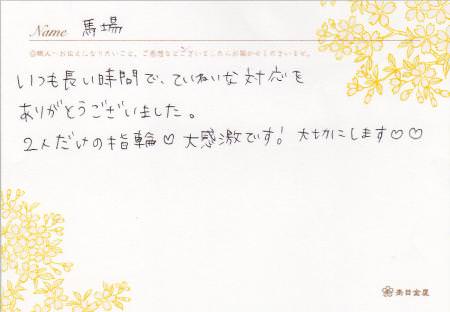 Name 馬場
◎職人・お伝えしたいこと、ご感想などございましたらお聞かせくださいませ。
いつも長い時間で、ていねいな対応を
ありがとうございました。
2人だけの指輪♡大感激です! 大切にします♡♡
杢目金屋